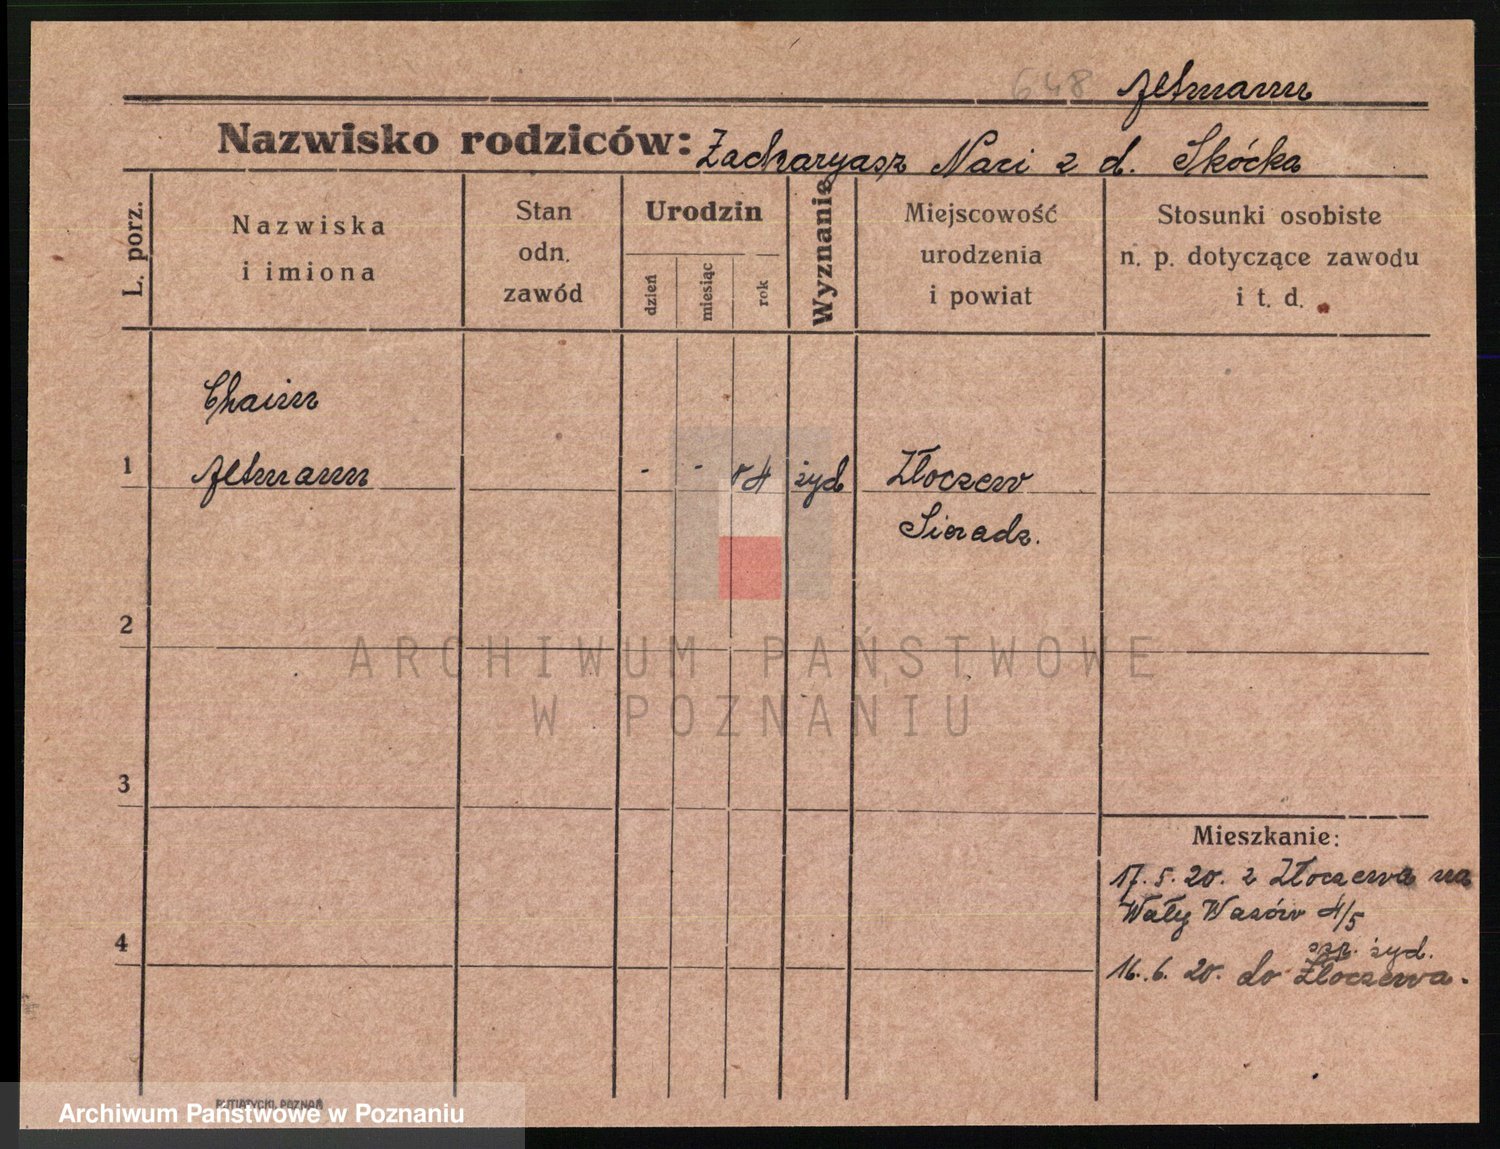 648 Altmann
Nazwisko rodziców: Zacharyasz Naci z d. Skócka
L. porz.
Nazwiska
i imiona
Stan
odn.
zawód
Urodzin
dzień
miesiąc
rok
Wyznanie
Miejscowość
urodzenia
i powiat
Stosunki osobiste
n. p. dotyczące zawodu
i t. d.
Chaim
1 Altmann - - 84 żyd Złoczew
Sieradz.
2
ARCHIWUM PAŃSTWOWE
W POZNANIU
3
Mieszkanie:
17.5.20. z Złoczewa na
Wały Wazów 4/5
szp. żyd.
4
16.6.20. do Złoczewa.
PUTIATYCKI, POZNAŃ
Archiwum Państwowe w Poznaniu